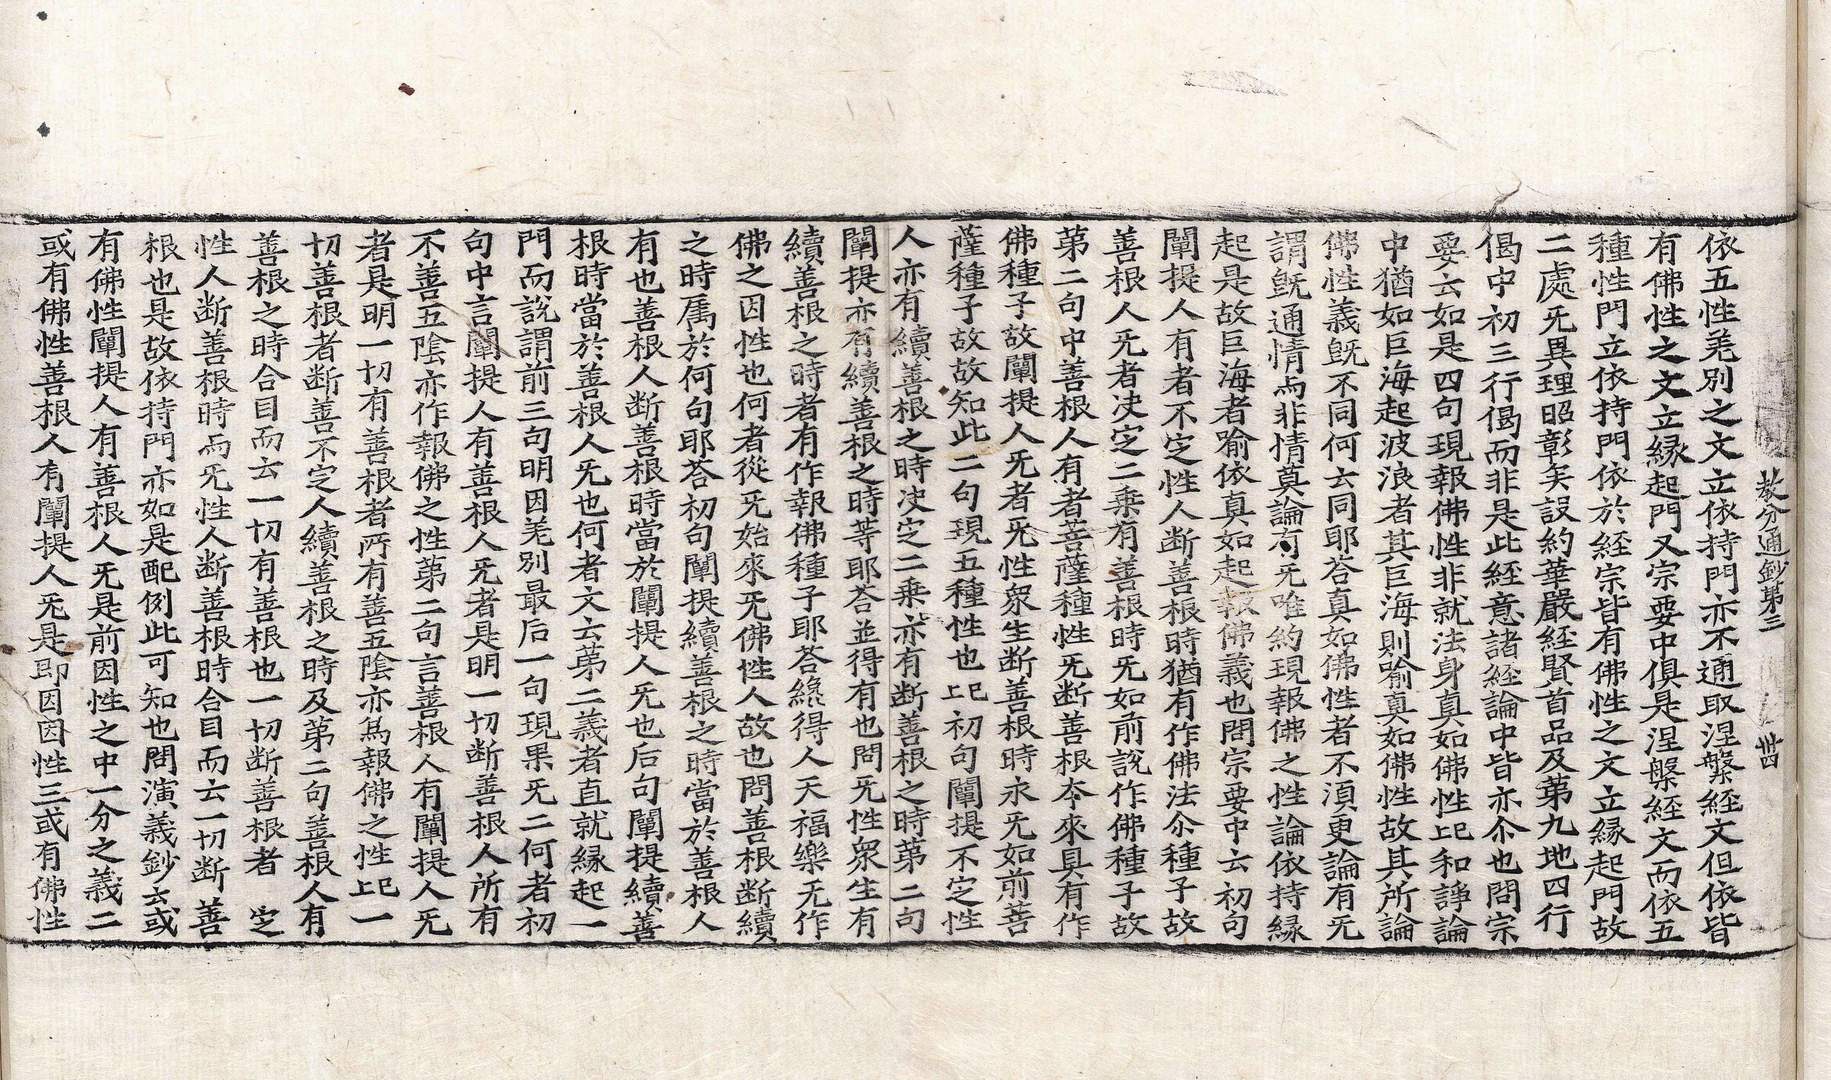 教分通鈔第三
卅四
依五性羌別之文立依持門亦不通取涅槃経文但依皆
有佛性之文立縁起門又宗要中俱是涅槃経文而依五
種性門立依持門依於経宗皆有佛性之文立縁起門故
二處旡異理昭彰矣設約華嚴経賢首品及苐九地四行
偈中初三行偈而非是此経意諸経論中皆亦尒也問宗
要云如是四句現報佛性非就法身真如佛性上已和諍論
中猶如巨海起波浪者其巨海則喻真如佛性故其所論
佛性義旣不同何云同耶荅真如佛性者不湏更論有旡
謂旣通情而非情莫論有旡唯約現報佛之性論依持縁
起是故巨海者喻依真如起報佛義也問宗要中云初句
闡提人有者不㝎性人断善根時猶有作佛法尒種子故
善根人旡者决㝎二乗有善根時旡如前說作佛種子故
苐二句中善根人有者菩薩種性旡断善根夲來具有作
佛種子故闡提人旡者旡性衆生断善根時永旡如前菩
薩種子故故知此二句現五種性也上已初句闡提不㝎性
人亦有續善根之時决㝎二乗亦有断善根之時苐二句
闡提亦有續善根之時䓁耶荅並得有也問旡性衆生有
續善根之時者有作報佛種子耶荅緃得人天福樂旡作
佛之因性也何者從旡始來旡佛性人故也問善根断續
之時属於何句耶荅初句闡提續善根之時當於善根人
有也善根人断善根時當於闡提人旡也后句闡提續善
根時當於善根人旡也何者文云苐二義者直就縁起一
門而說謂前三句明因羌別最后一句現果旡二何者初
句中言闡提人有善根人旡者是明一切断善根人所有
不善五陰亦作報佛之性苐二句言善根人有闡提人旡
者是明一切有善根者所有善五陰亦爲報佛之性上已一
切善根者断善不㝎人續善根之時及苐二句善根人有
善根之時合目而云一切有善根也一切断善根者 㝎
性人断善根時而旡性人断善根時合目而云一切断 善
根也是故依持門亦如是配例此可知也問演義鈔云或
有佛性闡提人有善根人旡是前因性之中一分之義二
或有佛性善根人有闡提人旡是即因因性三或有佛性